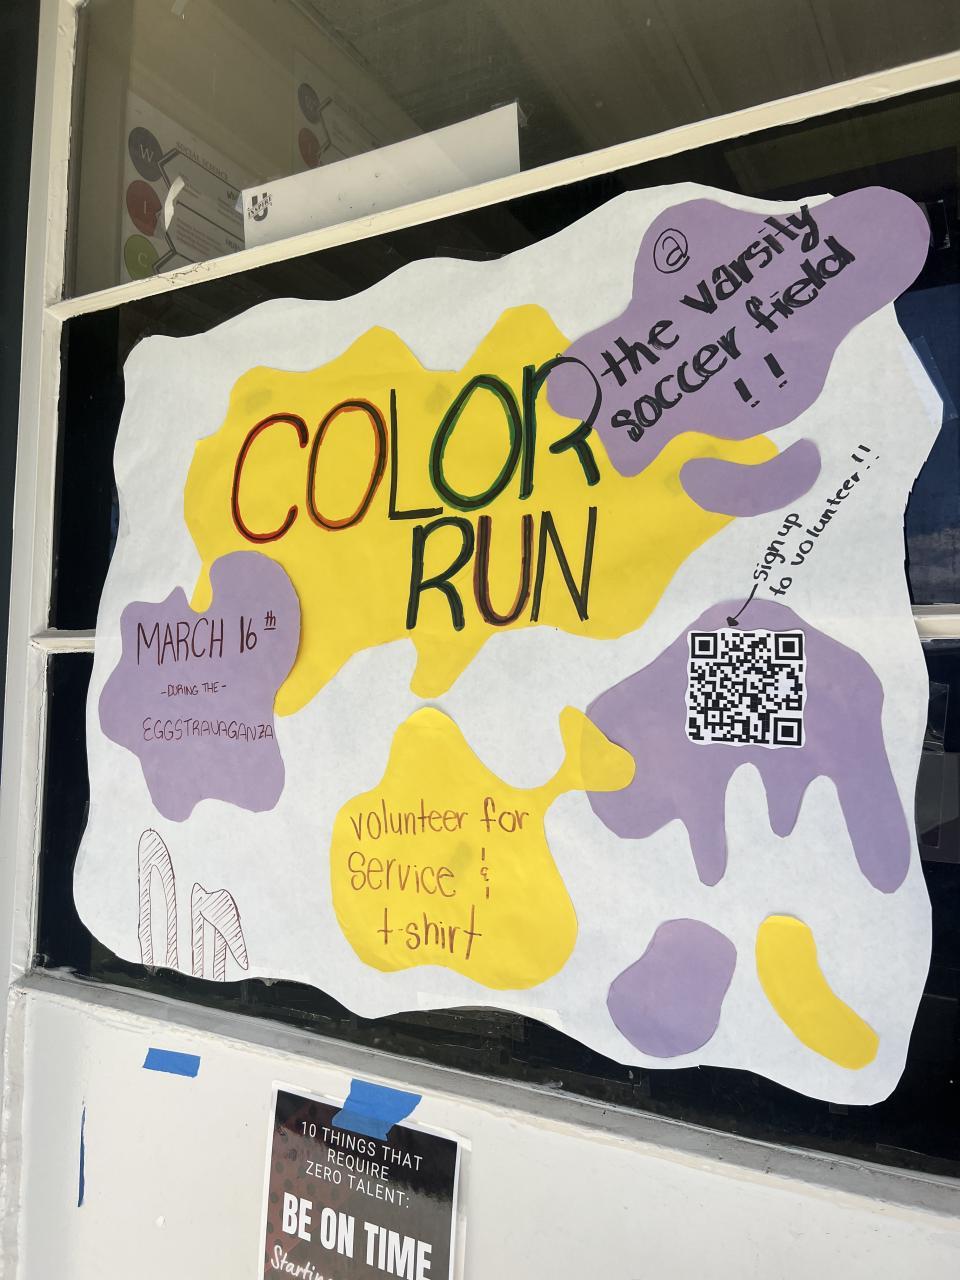 W
SOCIAL SCIENCE
I
C
U
INSPIRE
@
the varsity
soccer field
!!
COLOR
RUN
sign up
to volunteer!!
MARCH 16th
-DURING THE-
EGGSTRAVAGANZA
volunteer for
service &
t-shirt
10 THINGS THAT
REQUIRE
ZERO TALENT:
BE ON TIME